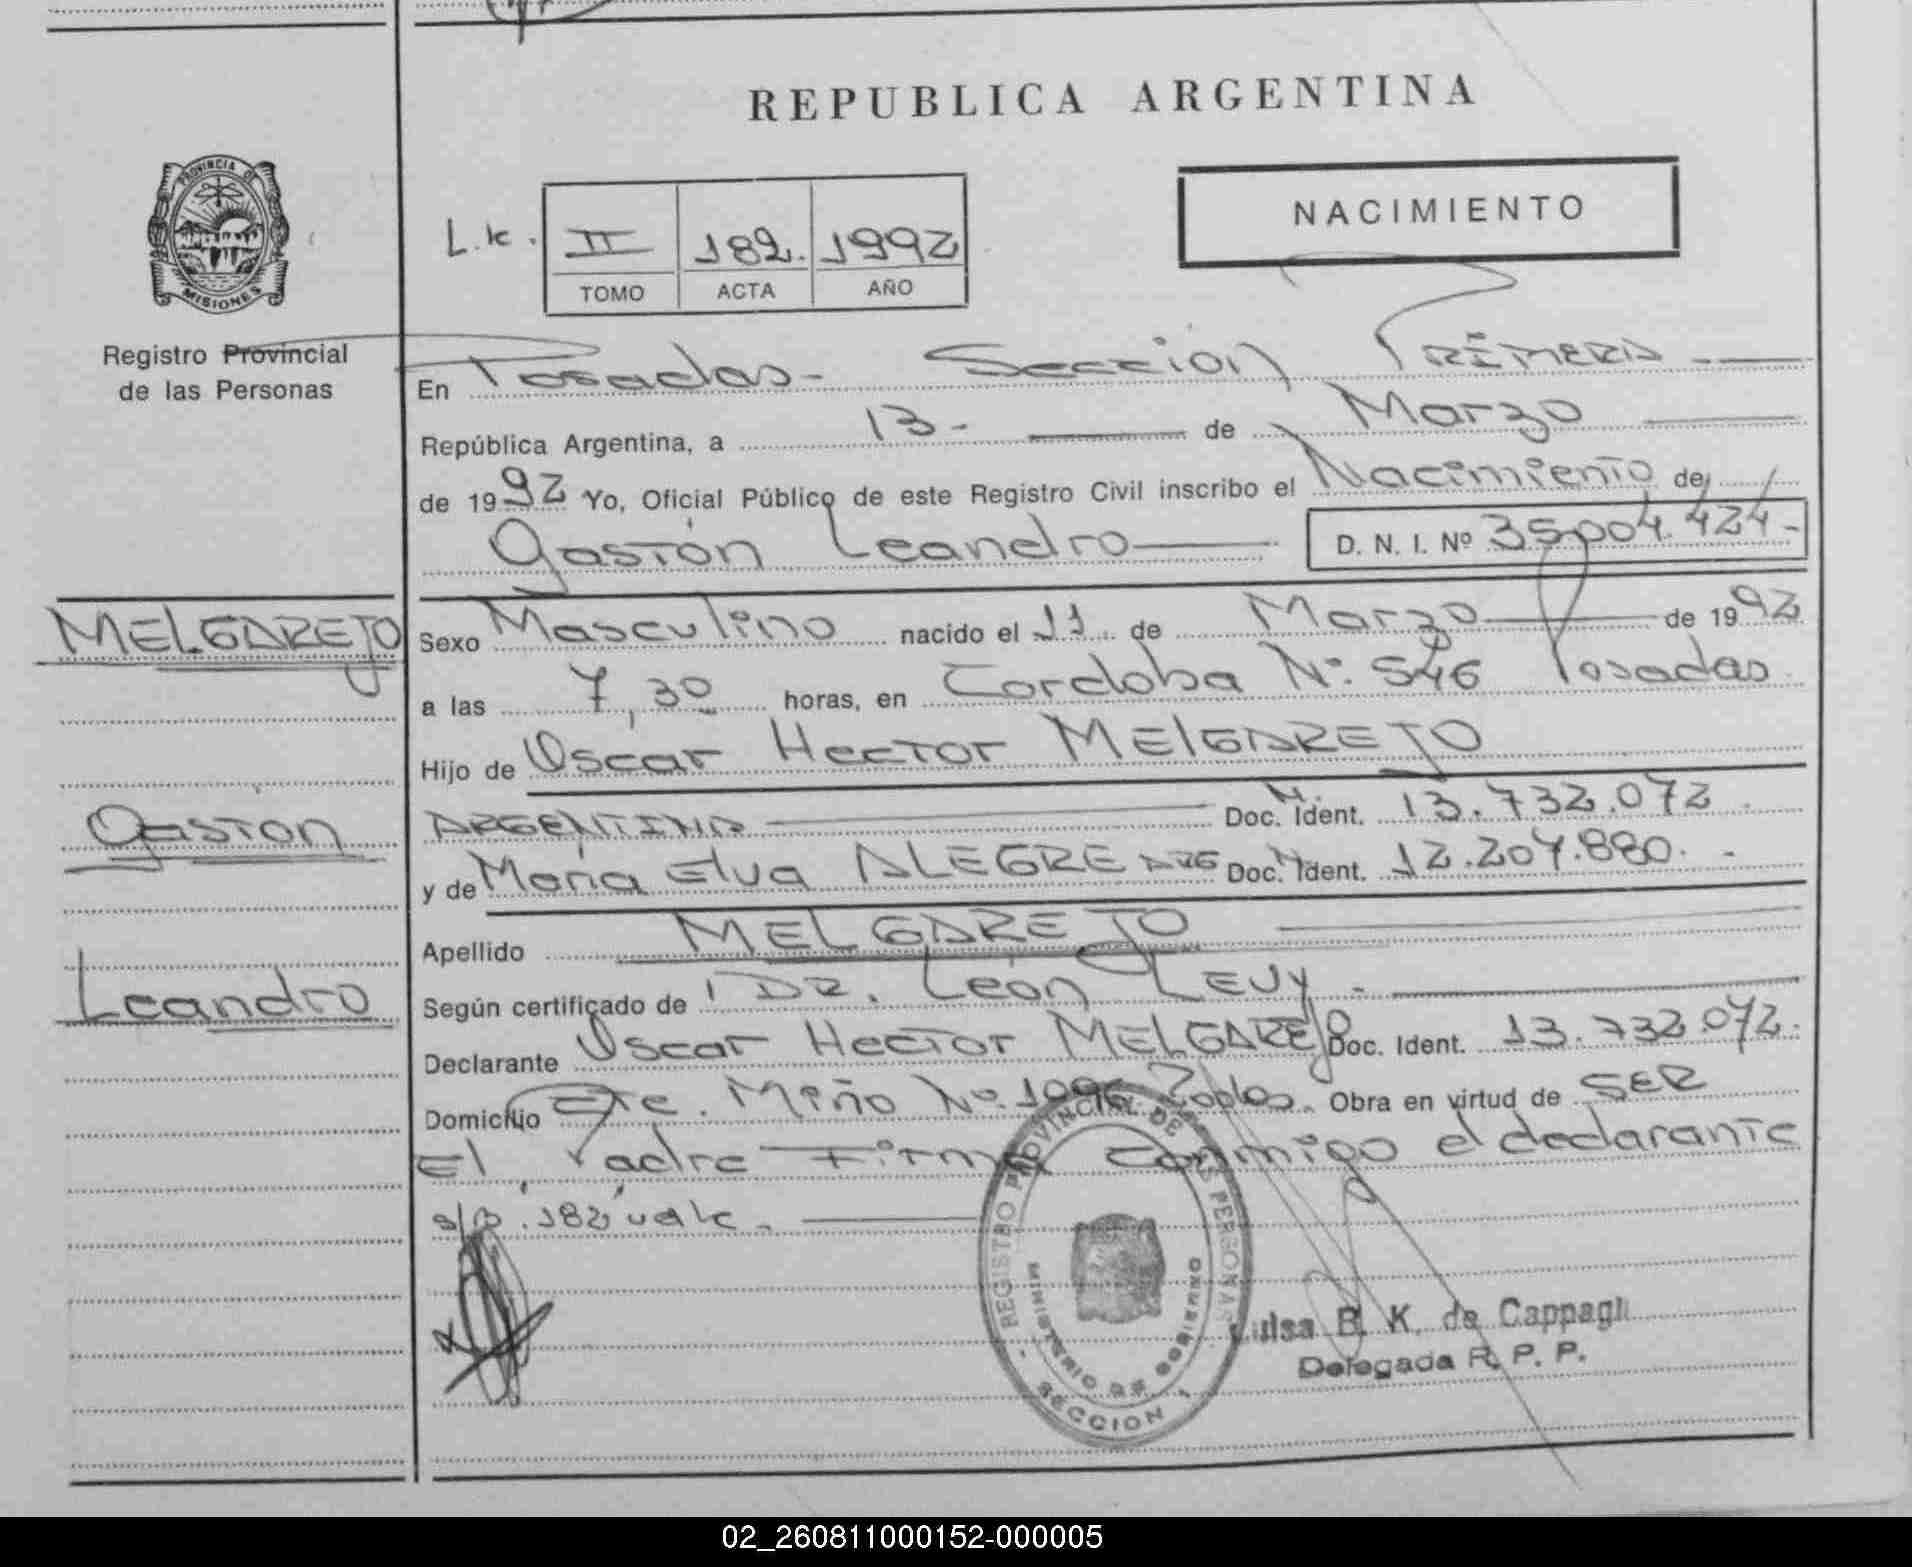 REPUBLICA ARGENTINA
PROVINCIA DE
MISIONES
Registro Provincial
de las Personas
NACIMIENTO
II 182. 1992
TOMO ACTA AÑO
En Posadas- Seccion PRIMERA
República Argentina, a 13- de Marzo
de 1992 Yo, Oficial Público de este Registro Civil inscribo el Nacimiento de
Gastón Leandro D. N. I. Nº 35004.424-
MELGAREJO
Gaston
Leandro
Sexo Masculino nacido el 11 de Marzo de 1992
a las 7,30 horas, en Cordoba Nº: 546 Posadas
Hijo de Oscar Hector MELGAREJO
ARGENTINA Doc. Ident. 13.732.072
y de María Elva ALEGRE ARG Doc. Ident. 12.207.880.-
Apellido MELGAREJO
Según certificado de DR. León LEVY.
Declarante Oscar Hector MELGAREJO Doc. Ident. 13.732.072.
Domicilio Miño Nº. 1096 Obra en virtud de SER
El Padre Firma conmigo el declarante
182 vale.
REGISTRO PROVINCIAL DE LAS PERSONAS
MINISTERIO DE GOBIERNO
SECCION 1
Luisa B. K. de Cappagli
Delegada R. P. P.
02_260811000152-000005